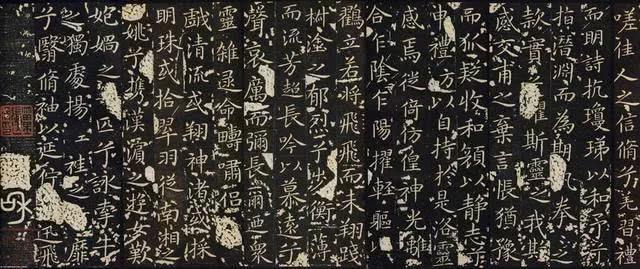 嗟佳人之信脩兮羌習禮
而明詩抗瓊珶以和予兮
指潛淵而為期執拳之
款實懼斯靈之我欺
感交甫之棄言悵猶豫
而狐疑收和顏以靜志兮
申禮防以自持於是洛靈
感焉徙倚仿偟神光離
合乍陰乍陽擢輕軀以
鸛立若將飛飛而未翔踐
椒塗之郁烈兮步衡薄
而流芳超長吟以慕遠兮
聲哀厲而彌長爾迺衆
靈雜遝命疇嘯侶
戲清流或翔神渚或採
明珠或拾翠羽從南湘之
姚兮攜漢濱之遊女歎
媧之匹兮詠牽牛
之獨處揚袿之靡
兮翳脩袖以延佇迅飛